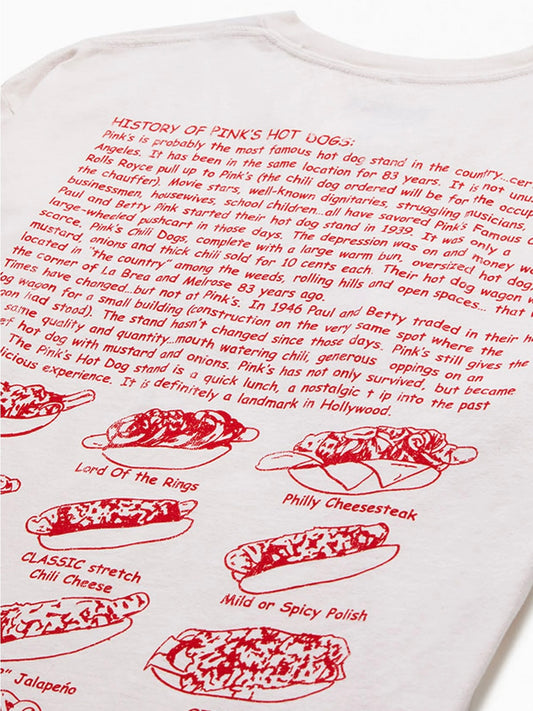 HISTORY OF PINK'S HOT DOGS:
Pink's is probably the most famous hot dog stand in the country...cer
Angeles. It has been in the same location for 83 years. It is not unus
Rolls Royce pull up to Pink's (the chili dog ordered will be for the occup
the chauffer). Movie stars, well-known dignitaries, struggling musicians,
businessmen, housewives, school children...all have savored Pink's Famous C
Paul and Betty Pink started their hot dog stand in 1939. It was only a
large-wheeled pushcart in those days. The depression was on and money w
scarce. Pink's Chili Dogs, complete with a large warm bun, oversized hot dog,
mustard, onions and thick chili sold for 10 cents each. Their hot dog wagon w
located in "the country" among the weeds, rolling hills and open spaces... that
the corner of La Brea and Melrose 83 years ago.
Times have changed...but not at Pink's. In 1946 Paul and Betty traded in their h
og wagon for a small building (construction on the very same spot where the
gon had stood). The stand hasn't changed since those days. Pink's still gives the
same quality and quantity...mouth watering chili, generous oppings on an
ef hot dog with mustard and onions. Pink's has not only survived, but became
The Pink's Hot Dog stand is a quick lunch, a nostalgic t ip into the past
licious experience. It is definitely a landmark in Hollywood.
Lord Of the Rings
Philly Cheesesteak
CLASSIC stretch
Chili Cheese
Mild or Spicy Polish
" Jalapeño